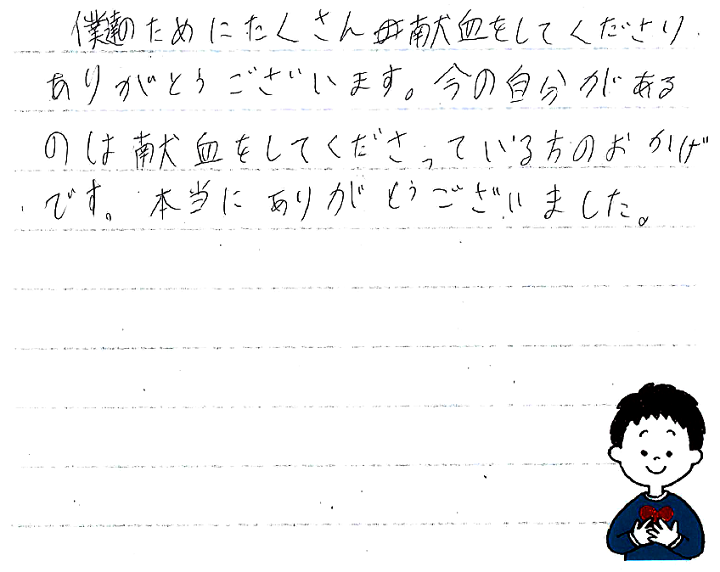 僕達のためにたくさん献血をしてくださり
ありがとうございます。今の自分がある
のは献血をしてくださっている方のおかげ
です。本当にありがとうございました。